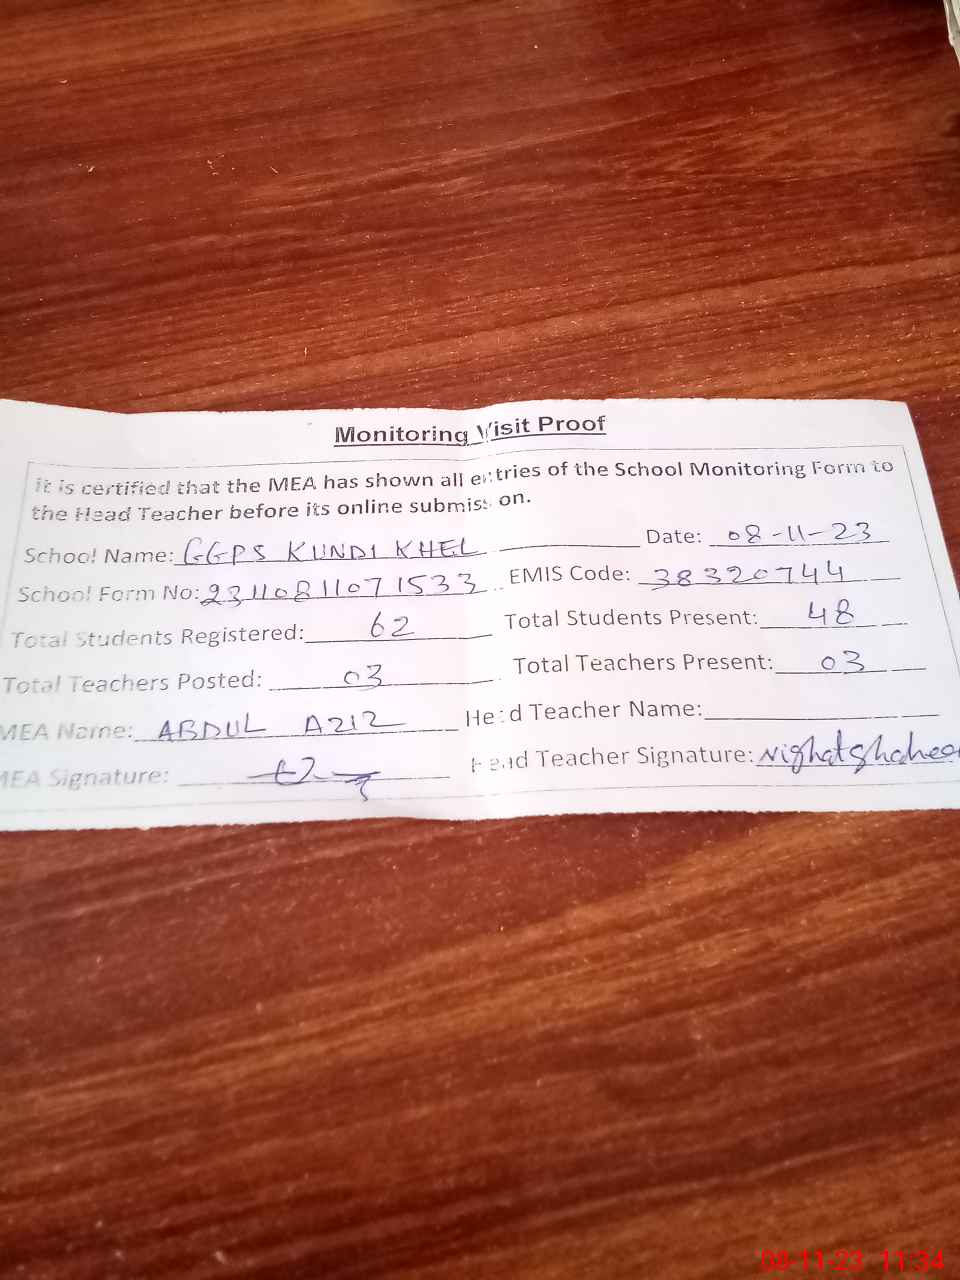 Monitoring Visit Proof
it is certified that the MEA has shown all entries of the School Monitoring Form to
the Head Teacher before its online submission.
School Name: GGPS KUNDI KHEL Date: 08-11-23
School Form No: 2311081107 1533 EMIS Code: 38320744
Total Students Registered: 62 Total Students Present: 48
Total Teachers Posted: 03 Total Teachers Present: 03
MEA Name: ABDUL AZIZ Head Teacher Name:
MEA Signature: Head Teacher Signature: Nighat Shaheen
08-11-23 11:34